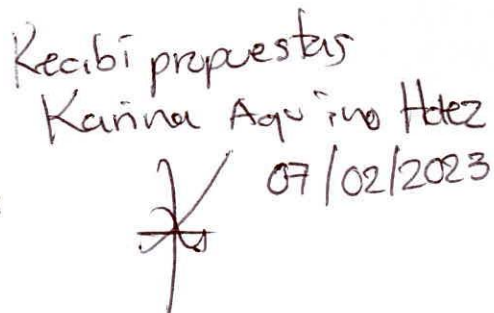 Recibí propuestas
Karina Aquino Hdez
07/02/2023